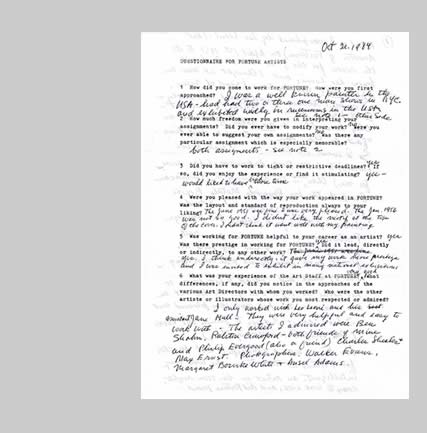 Oct 21. 1984
QUESTIONNAIRE FOR FORTUNE ARTISTS
1 How did you come to work for FORTUNE? How were you first
approached? I was a well known painter in the
USA - had had two or three one man shows in NYC.
and exhibited widely in museums in the USA
see note 1 - other side
2 How much freedom were you given in interpreting your
assignments? Did you ever have to modify your work? Were you
ever able to suggest your own assignments? Was there any
particular assignment which is especially memorable?
both assignments - see note 2
3 Did you have to work to tight or restrictive deadlines? If
so, did you enjoy the experience or find it stimulating? yes -
would liked to have more time
4 Were you pleased with the way your work appeared in FORTUNE?
Was the layout and standard of reproduction always to your
liking? The June 1951 I was very pleased. The Jan. 1956
was not so good. I didn't like the at the top
of the cover. I didn't think it went well with my painting
5 Was working for FORTUNE helpful to your career as an artist? yes
Was there prestige in working for FORTUNE, did it lead, directly
or indirectly, to any other work?
Yes. I think indirectly it gave my work more prestige
and I was invited to exhibit in many exhibitions
6 What was your experience of the Art Staff at FORTUNE? What
differences, if any, did you notice in the approaches of the
various Art Directors with whom you worked? Who were the other
artists or illustrators whose work you most respected or admired?
I only worked with Leo Lionni and his
assistant Jane Mull. They were very helpful and easy to
work with - The artists I admired were Ben
Shahn, Ralston Crawford - both friends of mine
and Philip Evergood (also a friend) Charles Sheeler +
Max Ernst. Photographers, Walker Evans,
Margaret Bourke White + Ansel Adams.